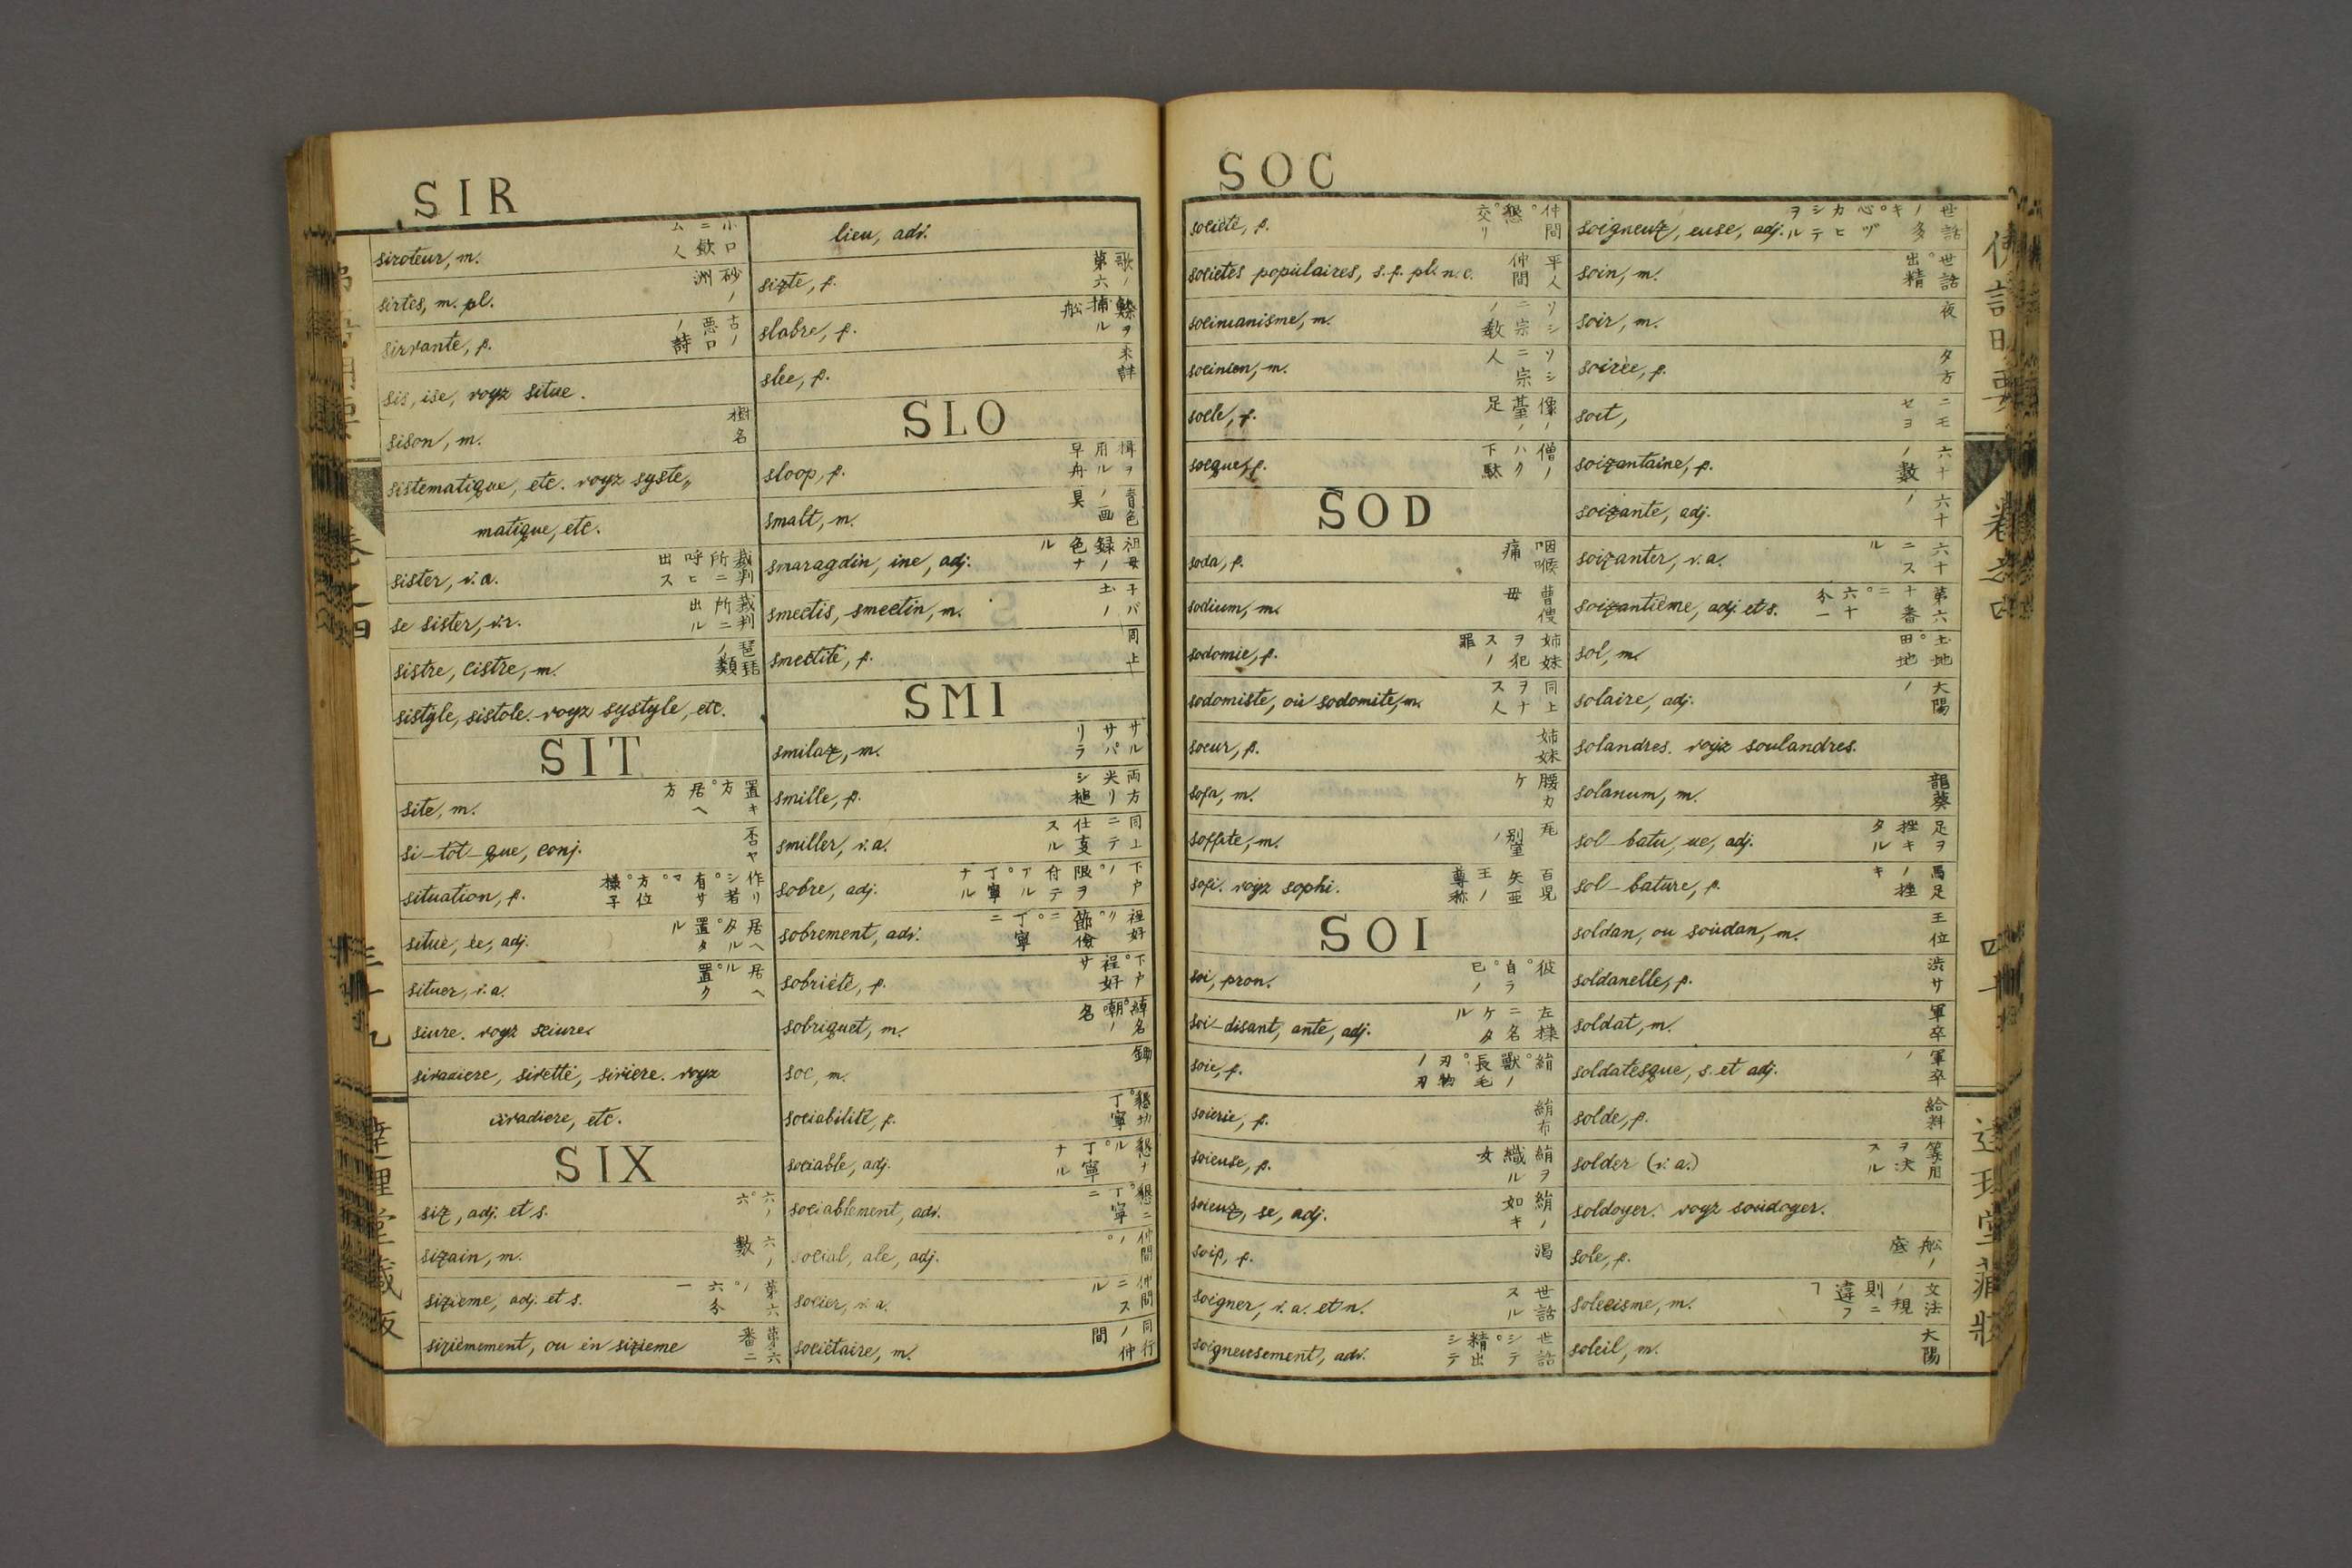 SIR
siroteur, m. 小口ニ飲ム人
sirtes, m. pl. 砂ノ洲
sirvante, f. 古ノ悪口ノ詩
sis, ise, voyz situe.
sison, m. 樹名
sistematique, etc. voyz syste„
matique, etc.
sister, v. a. 裁判所ニ呼ヒ出ス
se sister, v. r. 裁判所ニ出ル
sistre, cistre, m. 琵琶ノ類
sistyle, sistole. voyz systyle, etc.
SIT
site, m. 置キ方°居ヘ方
si-tôt-que, conj. 否ヤ
situation, f. 作リ若シ°有サマ°方位°様子
situé, ée, adj. 居ヘタル°置タル
situer, v. a. 居ヘル°置ク
siure. voyz sciure
sivadiere, sivette, siviere. voyz
civadiere, etc.
SIX
six, adj. et s. 六ノ°六
sixain, m. 六ノ數
sixieme, adj. et s. 第六ノ°六分一
sixiemement, ou en sixieme 第六番ニ
lieu, adv.
sixte, f. 歌ノ第六
slabre, f. 鰊ヲ捕ル舩
slee, f. 未詳
SLO
sloop, f. 楫ヲ用ル早舟
smalt, m. 青色ノ画具
smaragdin, ine, adj. 祖母録ノ色ナル
smectis, smectin, m. 土ノ
smectite, f. 同上
SMI
smilax, m. サルサパリラ
smille, f. 両方尖リシ槌
smiller, v. a. 同上ニテ仕支スル
sobre, adj. 下戸ノ°限ヲ付テアル°丁寧ナル
sobrement, adv. 程好リ°節儉ニ°丁寧ニ
sobriété, f. 下戸°程好サ
sobriquet, m. 綽名°嘲ノ名
soc, m. 鋤
sociabilité, f. 懇切°丁寧
sociable, adj. 懇ナル°丁寧ナル
sociablement, adv. 懇ニ°丁寧ニ
social, ale, adj. 仲間ノ°
socier, v. a. 仲間ニスル
sociétaire, m. 同行ノ仲間
SOC
société, f. 仲間°懇°交リ
societés populaires, s. f. pl. n. c. 平人仲間
socinianisme, m. ソシニ宗ノ教
socinien, m. ソシニ宗人
socle, f. 像ノ臺ノ足
socque, f. 僧ノハク下駄
SOD
soda, f. 咽喉痛
sodium, m. 曹傁母
sodomie, f. 姉妹ヲ犯スノ罪
sodomiste, où sodomite, m. 同上ヲナス人
soeur, f. 姉妹
sofa, m. 腰カケ
soffite, m.
sofi. voyz sophi. 百児矢亜王ノ尊称
SOI
soi, pron. 彼°自ラ°已ノ
soi-disant, ante, adj. 左様ニ名ケタル
soie, f. 絹°獸ノ長毛°刃物ノ刃
soierie, f. 絹布
soieuse, f. 絹ヲ織ル女
soieux, se, adj. 絹ノ如キ
soif, f. 渇
soigner, v. a. et n. 世話スル
soigneusement, adv. 世話シテ°精出シテ
soigneux, euse, adj. 世話多ノキ°心ヅカヒシテヲル
soin, m. 世話°出精
soir, m. 夜
soirée, f. 夕方
soit, ニモセヨ
soixantaine, f. 六十ノ數
soixante, adj. 六十ノ
soixanter, v. a. 六十ニスル
soixantième, adj. et s. 第六十番ニ°六十分一
sol, m. 土地°田地
solaire, adj. 大陽ノ
solandres. voyz soulandres.
solanum, m. 龍葵
sol-batu, ue, adj. 足ヲ挫キタル
sol-bature, f. 馬足ノ挫キ
soldan, ou soudan, m. 王位
soldanelle, f. 渋サ
soldat, m. 軍卒
soldatesque, s. et adj. 軍卒ノ
solde, f. 給料
solder (v. a.) 筭用ヲ決スル
soldoyer. voyz soudoyer.
sole, f. 舩ノ底
solecisme, m. 文法ノ規則ニ違フ
soleil, m. 大陽
達理堂蔵版